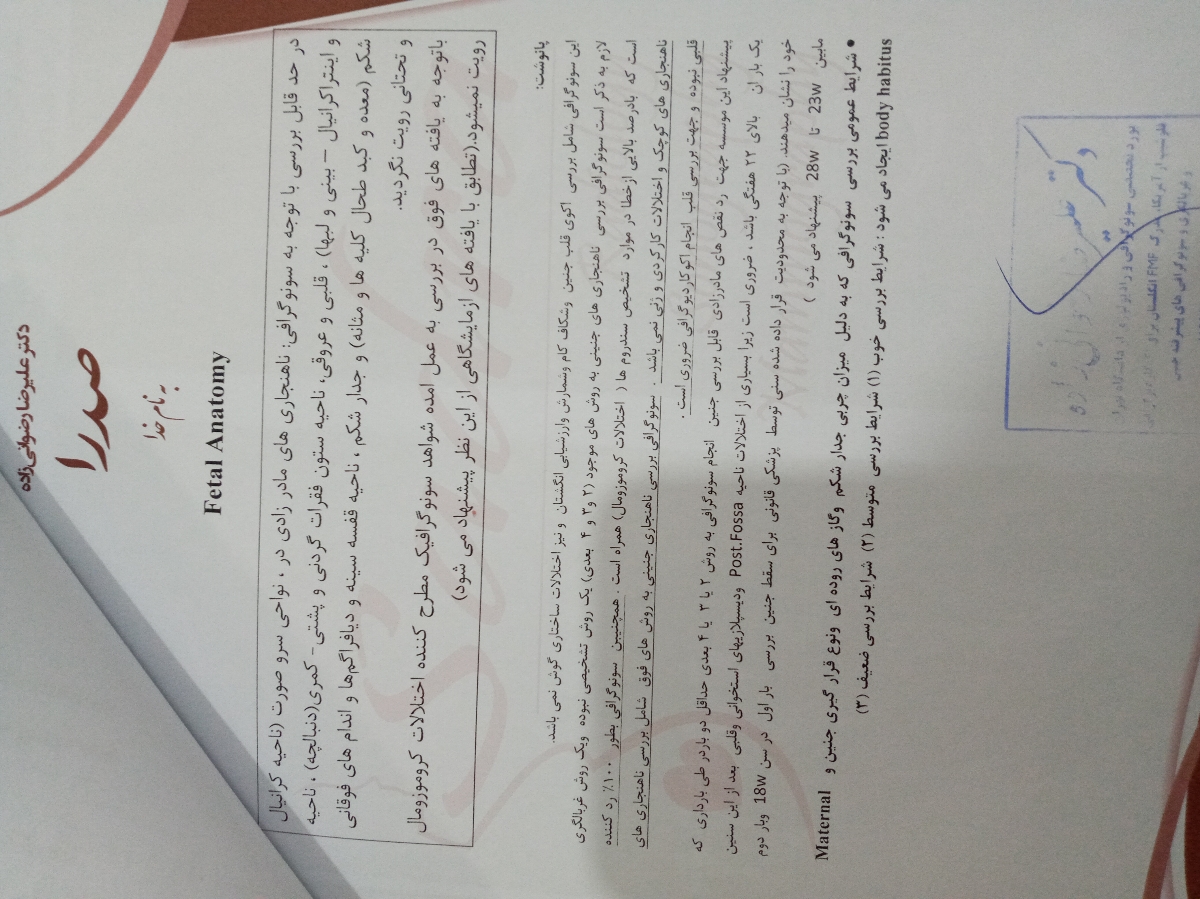 دکتر علیرضا رضوانی زاده
صدرا
به نام خدا
Fetal Anatomy
در حد قابل بررسی با توجه به سونوگرافی: ناهنجاری های مادر زادی در ، نواحی سرو صورت (ناحیه کرانیال
و اینتراکرانیال – بینی و لبها) ، قلبی و عروقی، ناحیه ستون فقرات گردنی و پشتی- کمری(دنبالچه) ، ناحیه
شکم (معده و کبد طحال کلیه ها و مثانه) و جدار شکم ، ناحیه قفسه سینه و دیافراگم‌ها و اندام های فوقانی
و تحتانی رویت نگردید.
باتوجه به یافته های فوق در بررسی به عمل امده شواهد سونوگرافیک مطرح کننده اختلالات کروموزومال
رویت نمیشود.(تطابق با یافته های ازمایشگاهی از این نظر پیشنهاد می شود)
پانوشت:
این سونوگرافی شامل بررسی اکوی قلب جنین وشکاف کام وشمارش وارزشیابی انگشتان و نیز اختلالات ساختاری گوش نمی باشد.
لازم به ذکر است سونوگرافی بررسی ناهنجاری های جنینی به روش های موجود (۲ و۳ و ۴ بعدی) یک روش تشخیصی نبوده ویک روش غربالگری
است که بادرصد بالایی ازخطا در موارد تشخیص سندروم ها ( اختلالات کروموزومال) همراه است . همچنیین سونوگرافی بطور ۱۰۰٪ رد کننده
ناهنجاری های کوچک و اختلالات کارکردی و ژنی نمی باشد . سونوگرافی بررسی ناهنجاری جنینی به روش های فوق شامل بررسی ناهنجاری های
قلبی نبوده و جهت بررسی قلب انجام اکوکاردیوگرافی ضروری است .
پیشنهاد این موسسه جهت رد نقص های مادرزادی قابل بررسی جنین انجام سونوگرافی به روش ۲ یا ۳ یا ۴ بعدی حداقل دو باردر طی بارداری که
یک بار ان بالای ۲۲ هفتگی باشد ، ضروری است زیرا بسیاری از اختلالات ناحیه Post.Fossa ودیسپلازیهای استخوانی وقلبی بعد از این سنین
خود را نشان میدهند. (با توجه به محدودیت قرار داده شده سنی توسط پزشکی قانونی برای سقط جنین بررسی بار اول در سن 18w وبار دوم
مابین 23w تا 28w پیشنهاد می شود )
• شرایط عمومی بررسی سونوگرافی که به دلیل میزان چربی جدار شکم وگاز های روده ای ونوع قرار گیری جنین و Maternal
body habitus ایجاد می شود : شرایط بررسی خوب (۱) شرایط بررسی متوسط (۲) شرایط بررسی ضعیف (۳)